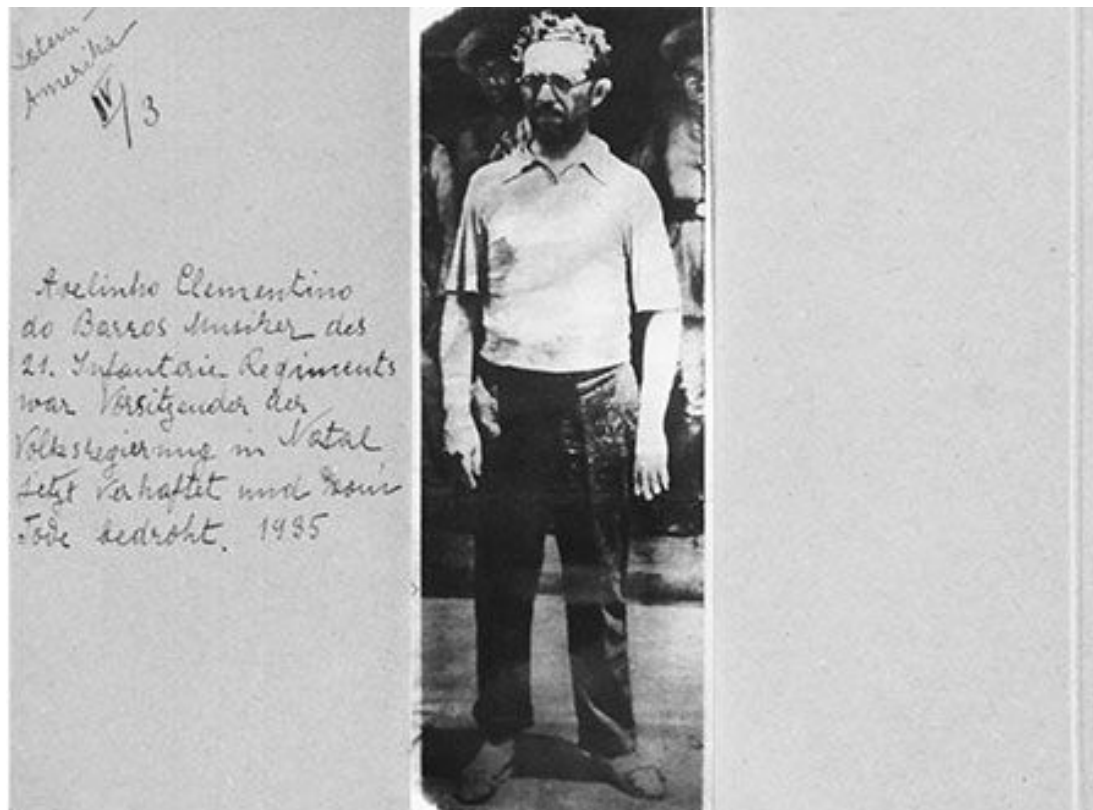 Latein-
Amerika
IV/3
Avelinho Clementino
do Barros Musiker des
21. Infanterie Regiments
war Vorsitzender der
Volksregierung in Natal
jetzt verhaftet und vom
Tode bedroht. 1935